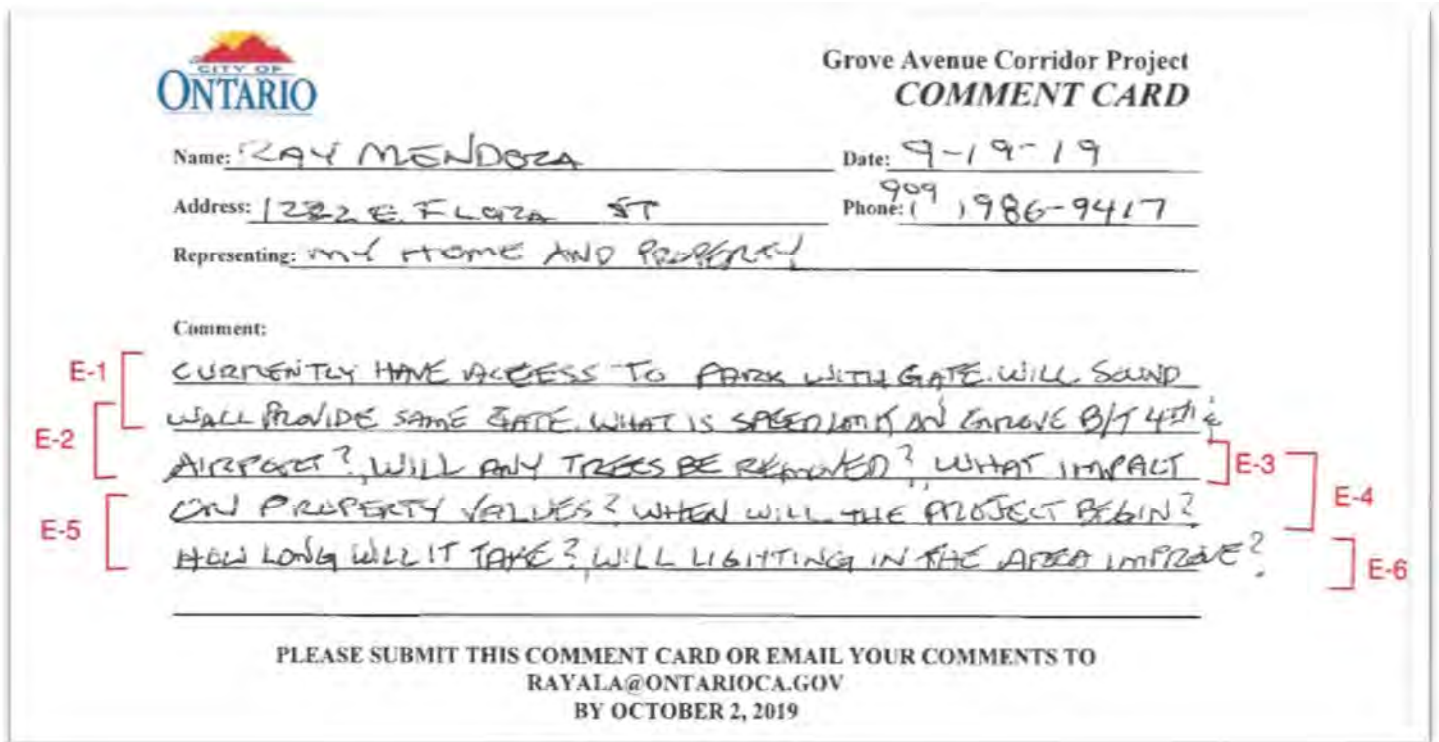 CITY OF
ONTARIO
Grove Avenue Corridor Project
COMMENT CARD
Name: RAY MENDOZA Date: 9-19-19
Address: 1222 E. FLORA ST Phone: (909) 986-9417
Representing: MY HOME AND PROPERTY
Comment:
E-1 CURRENTLY HAVE ACCESS TO PARK WITH GATE. WILL SOUND
E-2 WALL PROVIDE SAME GATE. WHAT IS SPEED LIMIT ON GROVE B/T 4TH &
AIRPORT? WILL ANY TREES BE REMOVED? WHAT IMPACT E-3
E-4
E-5 ON PROPERTY VALUES? WHEN WILL THE PROJECT BEGIN?
HOW LONG WILL IT TAKE? WILL LIGHTING IN THE AREA IMPROVE? E-6
PLEASE SUBMIT THIS COMMENT CARD OR EMAIL YOUR COMMENTS TO
RAYALA@ONTARIOCA.GOV
BY OCTOBER 2, 2019